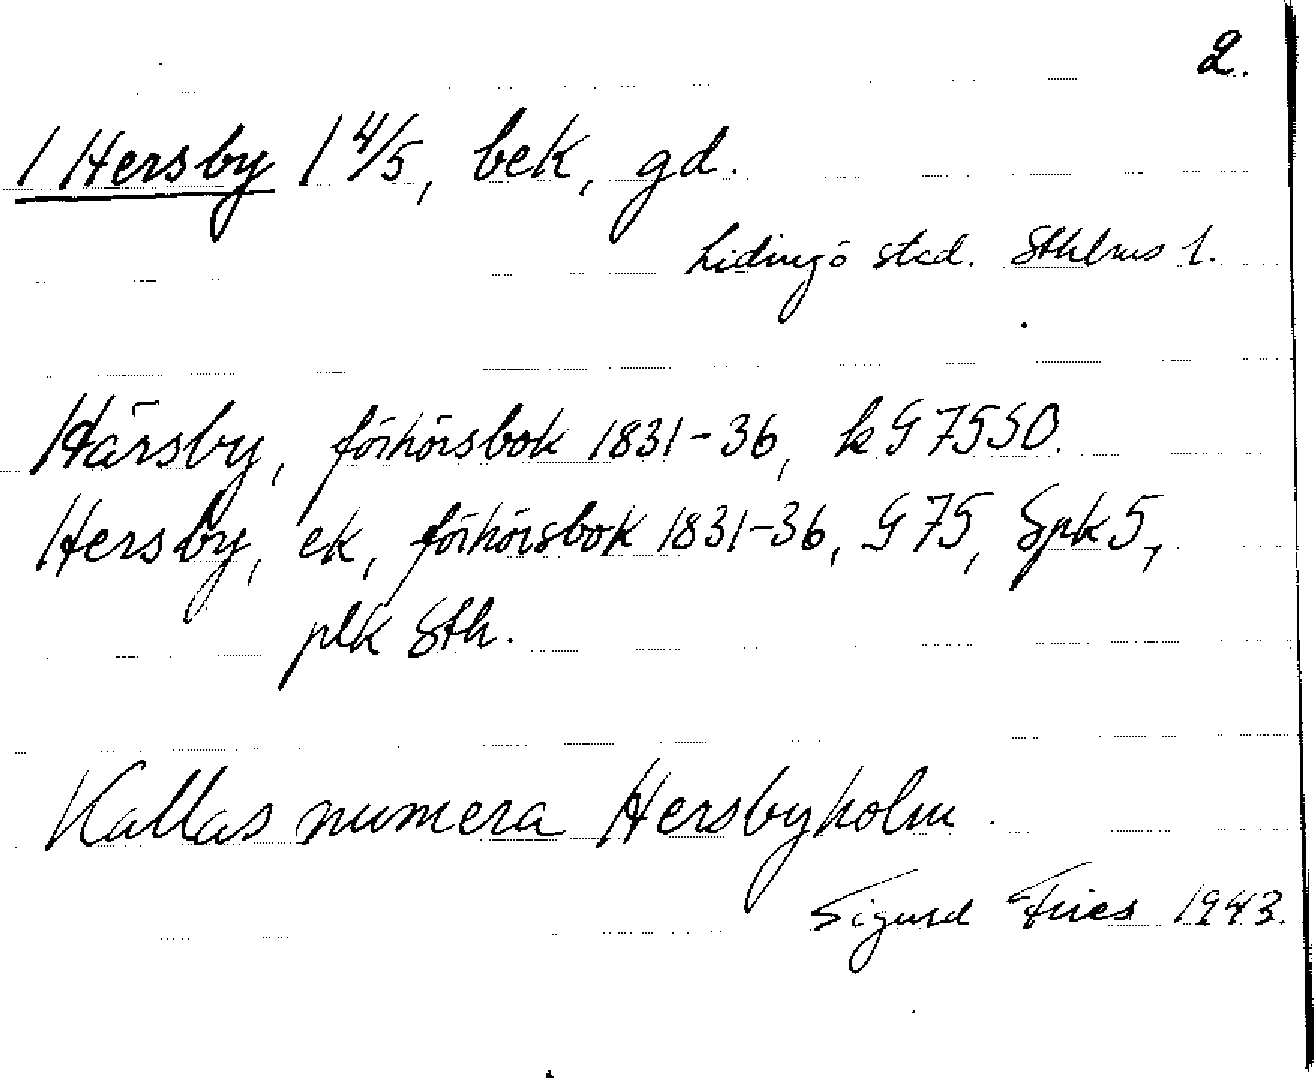 2.
1 Hersby 1 4/5, bek, gd.
Lidingö stad. Sthlms l.
Härsby, förhörsbok 1831-36, k G 75 SO.
Hersby, ek, förhörsbok 1831-36, G 75, Spk 5,
plk Sth.
Kallas numera Hersbyholm.
Sigurd Fries 1943.